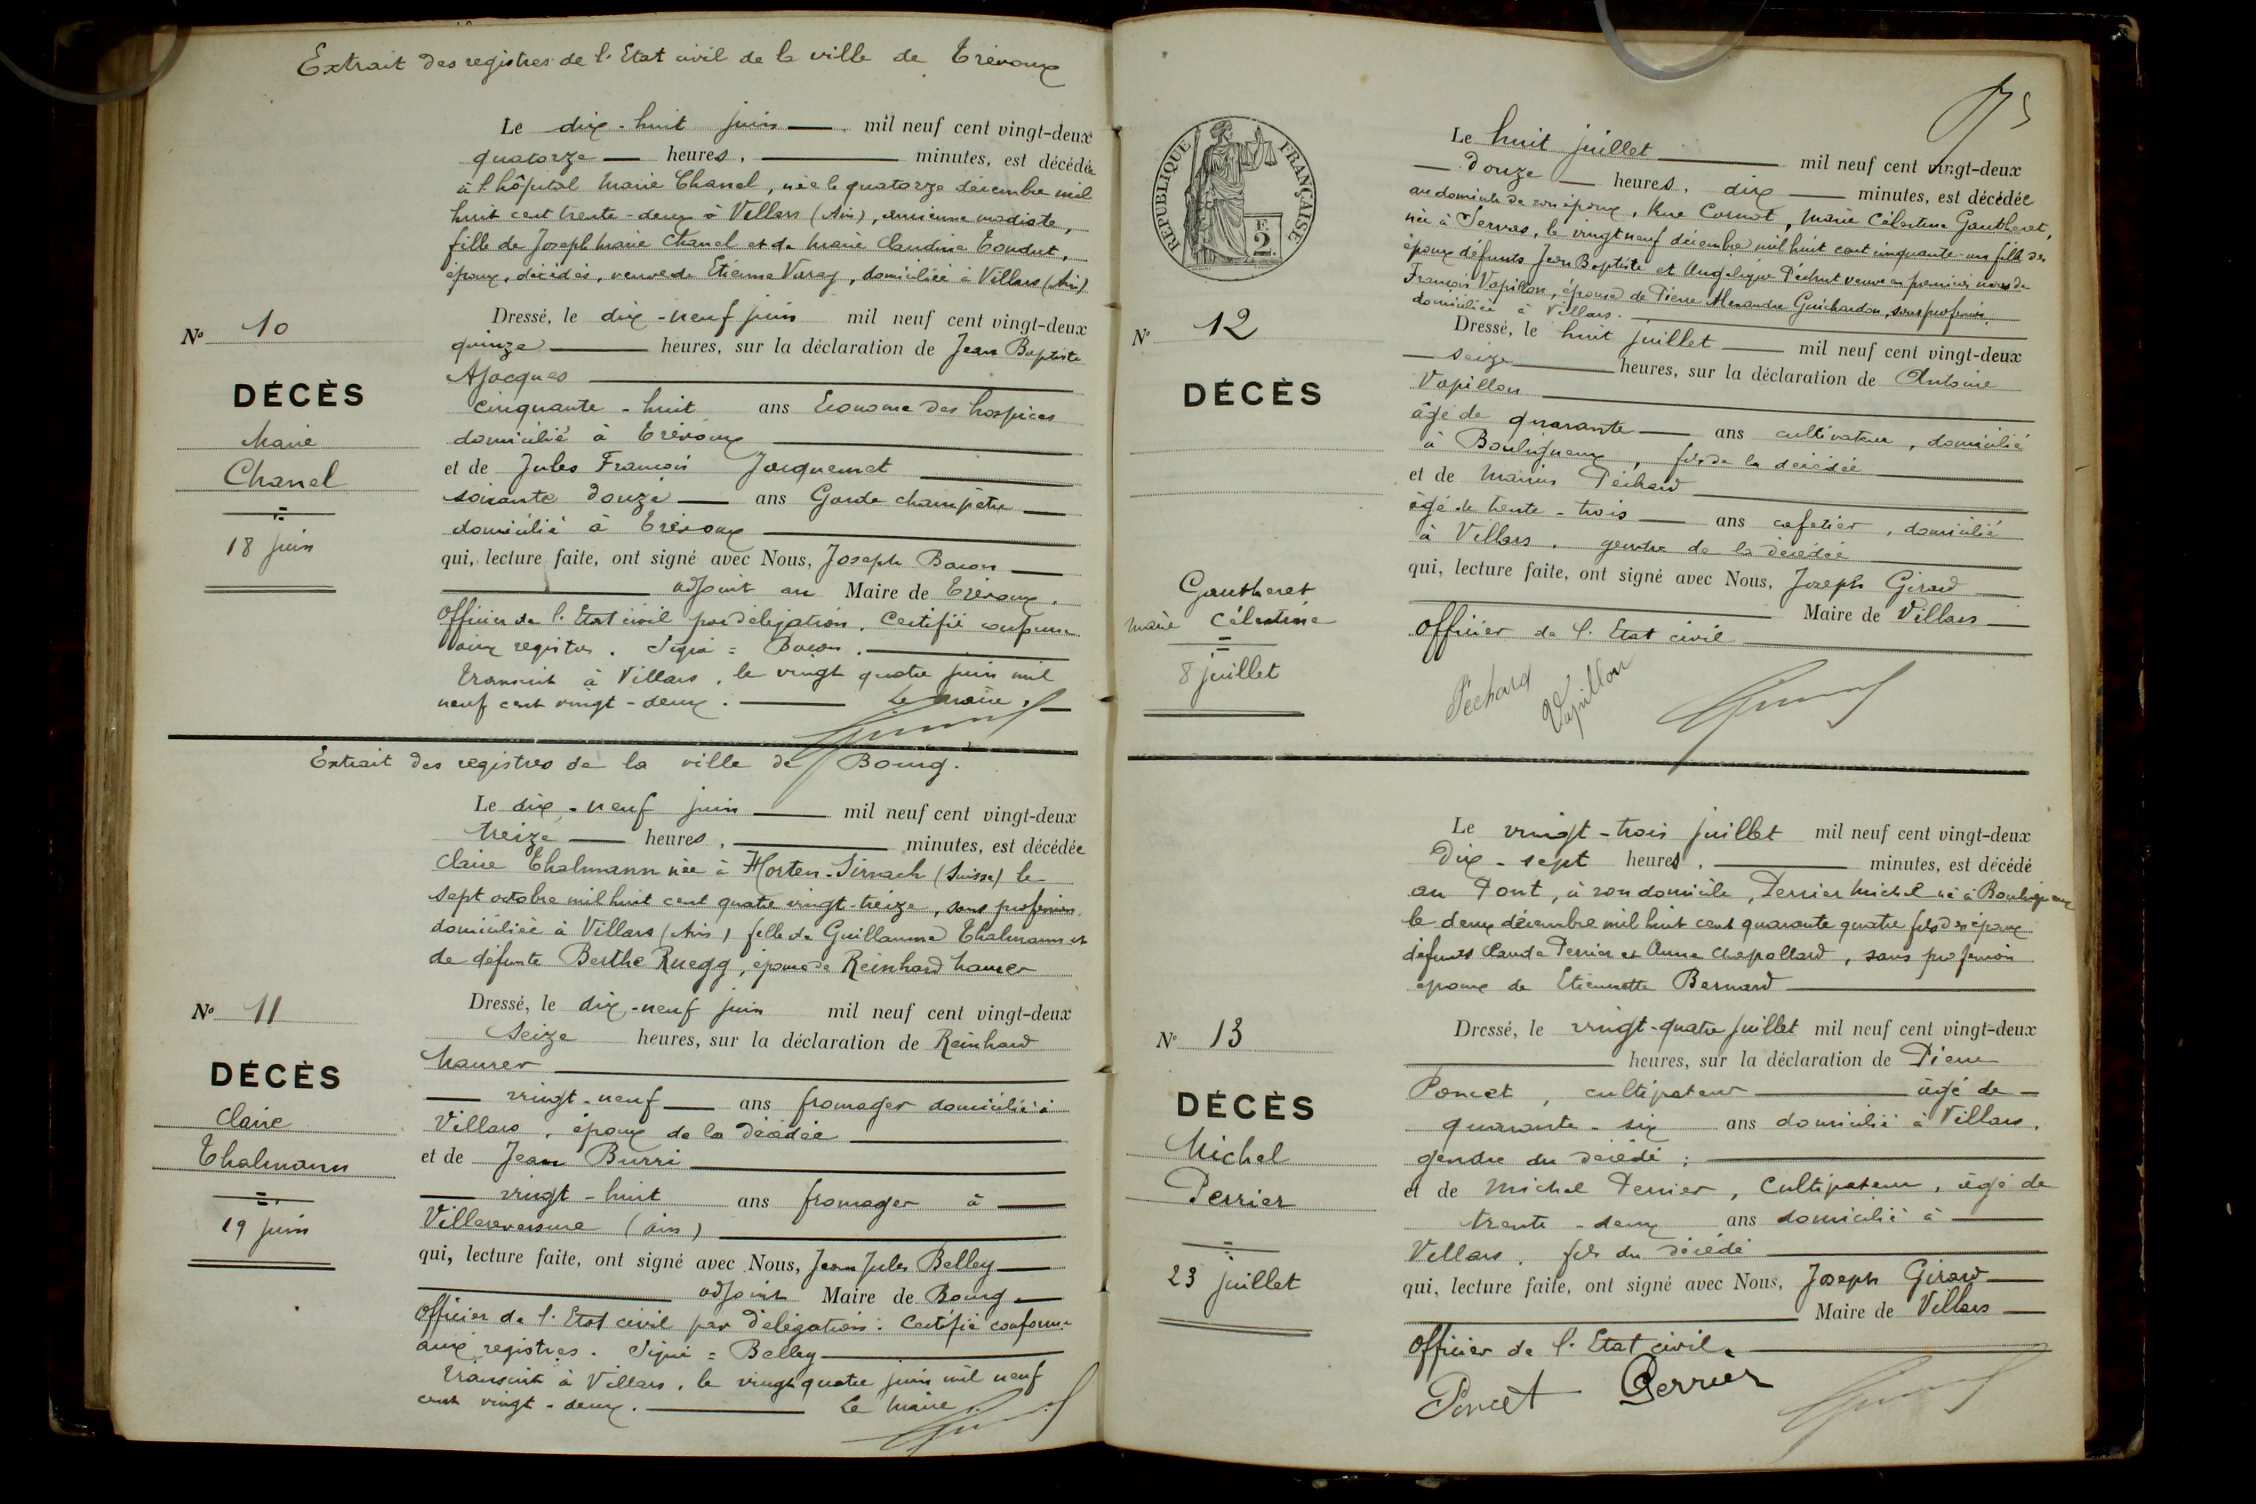 Extrait des registres de l'Etat civil de la ville de Trévoux
Le dix-huit juin mil neuf cent vingt-deux
quatorze heures, minutes, est décédée
à l'hôpital Marie Chanel, née le quatorze décembre mil
huit cent trente-deux à Villars (Ain), ancienne modiste,
fille de Joseph Marie Chanel et de Marie Claudine
époux, décédés, veuve de Etienne Varay, domiciliée à Villars (Ain)
Dressé, le dix-neuf juin mil neuf cent vingt-deux
quinze heures, sur la déclaration de Jean Baptiste
Ajacques
cinquante-huit ans Econome des hospices
domicilié à Trévoux
et de Jules François Jacquemet
soixante douze ans Garde champêtre
domicilié à Trévoux
qui, lecture faite, ont signé avec Nous, Joseph Bacon
adjoint au Maire de Trévoux,
Officier de l'Etat civil par délégation. Certifié conforme
aux registres. Signé = Bacon.
Transcrit à Villars, le vingt quatre juin mil
neuf cent vingt-deux. Le Maire,
N° 10
DÉCÈS
Marie
Chanel
18 juin
Extrait des registres de la ville de Bourg.
Le dix-neuf juin mil neuf cent vingt-deux
treize heures, minutes, est décédée
Claire Thalmann née à Horten-Sirnach (Suisse) le
sept octobre mil huit cent quatre vingt-treize, sans profession
domiciliée à Villars (Ain) fille de Guillaume Thalmann et
de défunte Berthe Ruegg, épouse de Reinhard Maurer
Dressé, le dix-neuf juin mil neuf cent vingt-deux
seize heures, sur la déclaration de Reinhard
Maurer
vingt-neuf ans fromager domicilié à
Villars, époux de la décédée
et de Jean Burri
vingt-huit ans fromager à
Villereversure (Ain)
qui, lecture faite, ont signé avec Nous, Jean Jules Belley
adjoint Maire de Bourg
Officier de l'Etat civil par délégation. Certifié conforme
aux registres. Signé = Belley
Transcrit à Villars, le vingt quatre juin mil neuf
cent vingt-deux. Le Maire,
N° 11
DÉCÈS
Claire
Thalmann
19 juin
RÉPUBLIQUE FRANÇAISE
F.
2
Le huit juillet mil neuf cent vingt-deux
douze heures, dix minutes, est décédée
au domicile de son époux, Rue Carnot, Marie Célestine Gautheret,
née à Servas, le vingt neuf décembre mil huit cent cinquante-un fille des
époux défunts Jean Baptiste et Angélique veuve en premières noces de
François Vapillon, épouse de Pierre Alexandre Guichardon, sans profession,
domiciliée à Villars.
Dressé, le huit juillet mil neuf cent vingt-deux
seize heures, sur la déclaration de Antoine
Vapillon
âgé de quarante ans cultivateur, domicilié
à Bouligneux, fils de la décédée
et de Marius Péchard
âgé de trente-trois ans cafetier, domicilié
à Villars, gendre de la décédée
qui, lecture faite, ont signé avec Nous, Joseph Girard
Maire de Villars
Officier de l'Etat civil
Péchard
Vapillon
N° 12
DÉCÈS
Gautheret
Marie Célestine
8 juillet
Le vingt-trois juillet mil neuf cent vingt-deux
dix-sept heures, minutes, est décédé
au Pont, à son domicile, Perrier Michel né à Bouligneux
le deux décembre mil huit cent quarante quatre fils des époux
défunts Claude Perrier et Anne Chapollard, sans profession
époux de Etiennette Bernard
Dressé, le vingt-quatre juillet mil neuf cent vingt-deux
heures, sur la déclaration de Pierre
Poncet, cultivateur âgé de
quarante-six ans domicilié à Villars,
gendre du décédé;
et de Michel Perrier, cultivateur, âgé de
trente-deux ans domicilié à
Villars, fils du décédé
qui, lecture faite, ont signé avec Nous, Joseph Girard
Maire de Villars
Officier de l'Etat civil.
Poncet Perrier
N° 13
DÉCÈS
Michel
Perrier
23 juillet